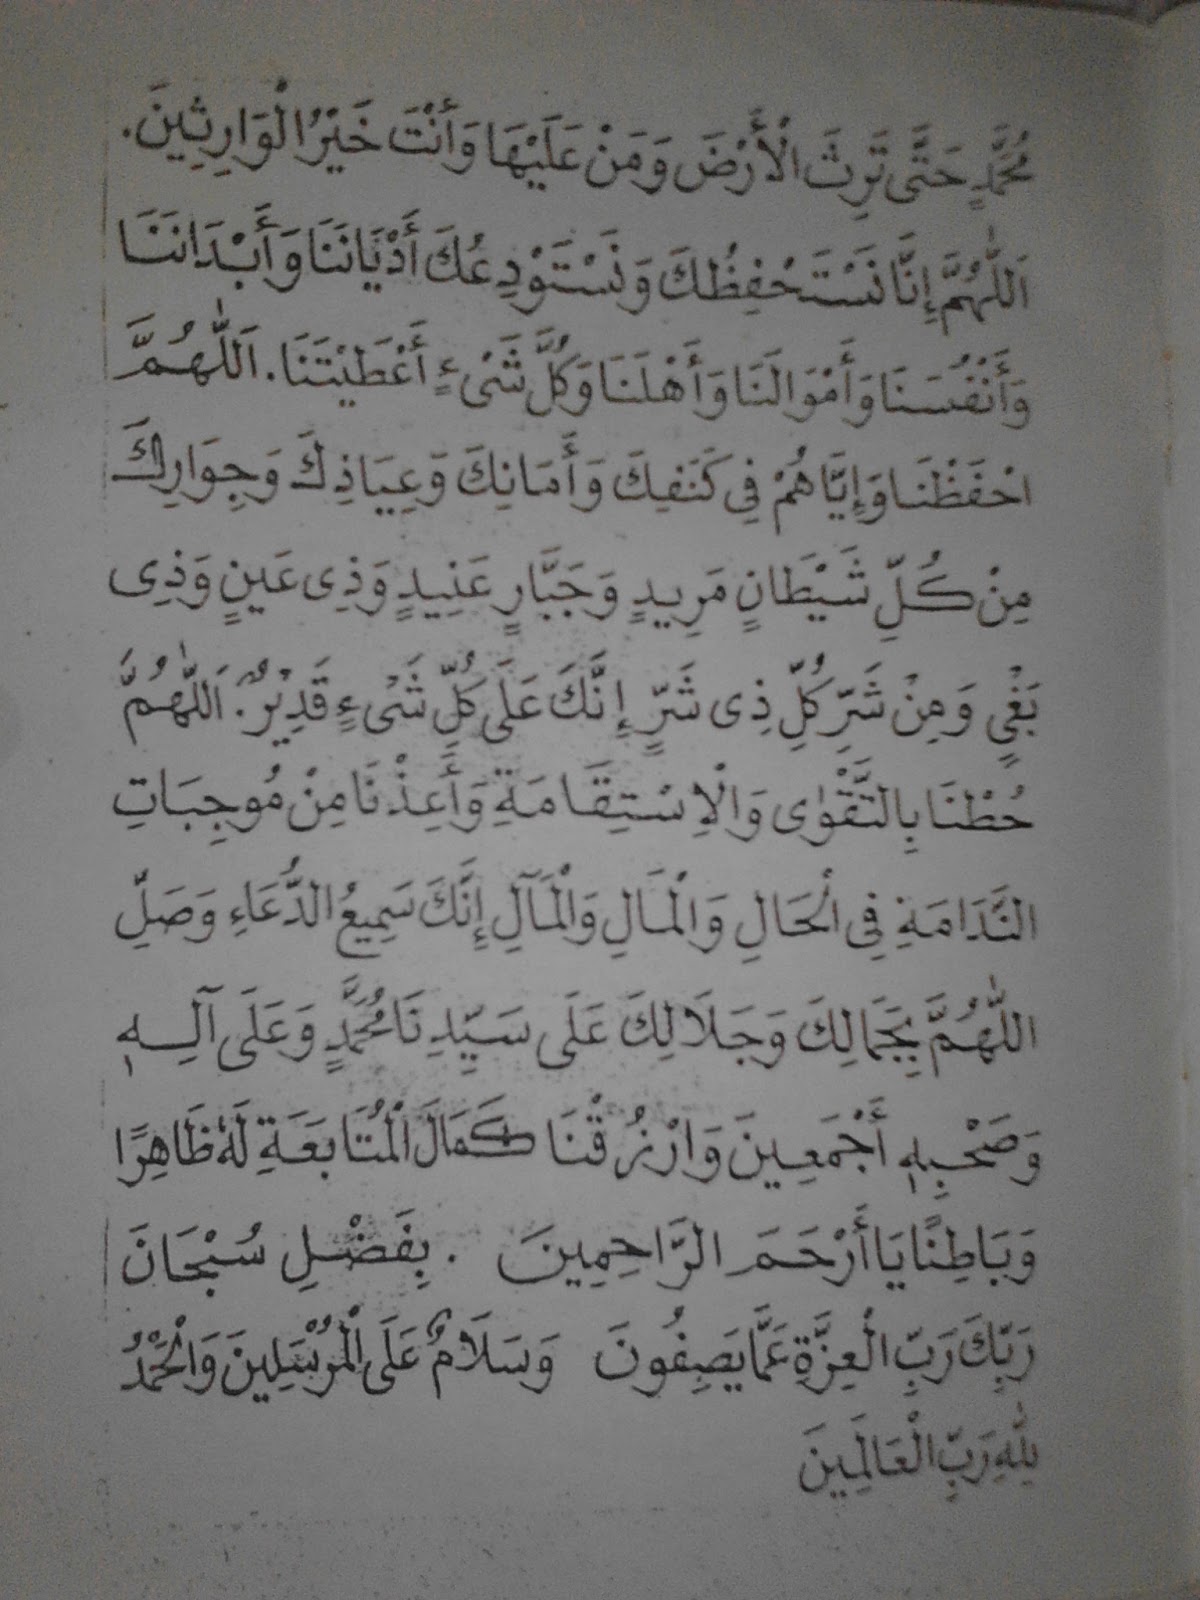 مُحَمَّدٍ حَتَّى تَرِثَ الْأَرْضَ وَمَنْ عَلَيْهَا وَأَنْتَ خَيْرُ الْوَارِثِينَ.
اَللّٰهُمَّ إِنَّا نَسْتَحْفِظُكَ وَنَسْتَوْدِعُكَ أَدْيَانَنَا وَأَبْدَانَنَا
وَأَنْفُسَنَا وَأَمْوَالَنَا وَأَهْلَنَا وَكُلَّ شَىْءٍ أَعْطَيْتَنَا. اَللّٰهُمَّ
احْفَظْنَا وَإِيَّاهُمْ فِي كَنَفِكَ وَأَمَانِكَ وَعِيَاذِكَ وَجِوَارِكَ
مِنْ كُلِّ شَيْطَانٍ مَرِيدٍ وَجَبَّارٍ عَنِيدٍ وَذِى عَيْنٍ وَذِى
بَغْيٍ وَمِنْ شَرِّ كُلِّ ذِى شَرٍّ إِنَّكَ عَلَى كُلِّ شَىْءٍ قَدِيْرٌ. اَللّٰهُمَّ
حُطْنَا بِالتَّقْوٰى وَالْاِسْتِقَامَةِ وَأَعِذْنَا مِنْ مُوجِبَاتِ
النَّدَامَةِ فِى الْحَالِ وَالْمَالِ وَالْمَآلِ إِنَّكَ سَمِيعُ الدُّعَاءِ وَصَلِّ
اللّٰهُمَّ بِجَمَالِكَ وَجَلَالِكَ عَلَى سَيِّدِنَا مُحَمَّدٍ وَعَلَى آلِهِ
وَصَحْبِهِ أَجْمَعِينَ وَارْزُقْنَا كَمَالَ الْمُتَابَعَةِ لَهُ ظَاهِرًا
وَبَاطِنًا يَا أَرْحَمَ الرَّاحِمِينَ . بِفَضْلِ سُبْحَانَ
رَبِّكَ رَبِّ الْعِزَّةِ عَمَّا يَصِفُونَ وَسَلَامٌ عَلَى الْمُرْسَلِينَ وَالْحَمْدُ
لِلّٰهِ رَبِّ الْعَالَمِينَ